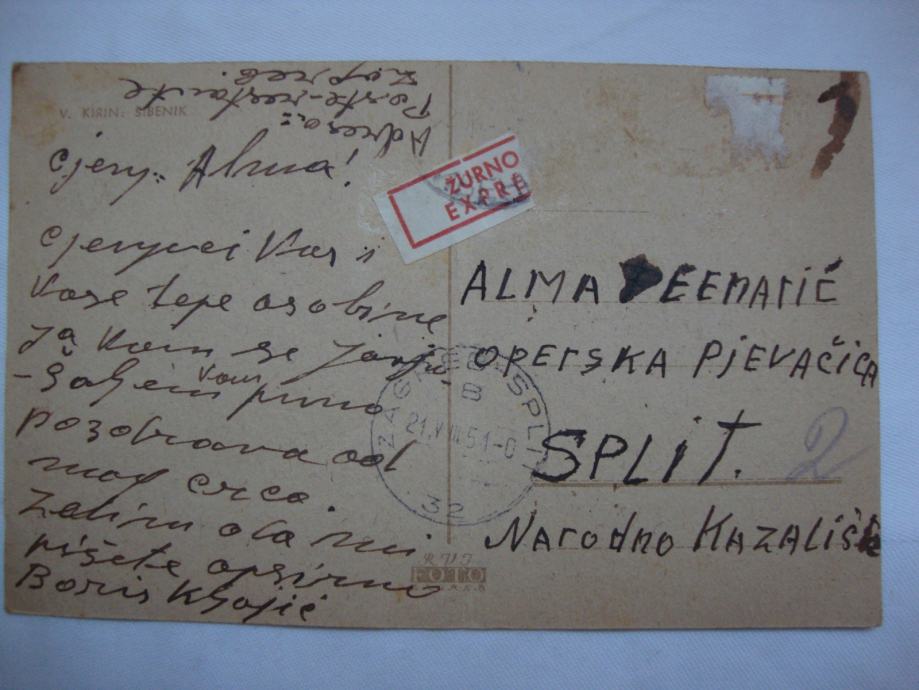 V. KIRIN: ŠIBENIK
Adresa:
Poste-restante
Zagreb
Cjenj. Alma!
Cjenjuci Vas i
Vase lepe osobine
ja Vam se javljam
- Šaljem Vam puno
pozdrava od
mog srca.
Zelim da mi
pišete opsirno
Boris
ŽURNO
EXPRE
ALMA
OPERSKA PJEVAČICA
SPLIT.
2
NARODNO KAZALIŠTE
ZAGREB-SPLIT
B
21.VIII.51-0
32
FOTO